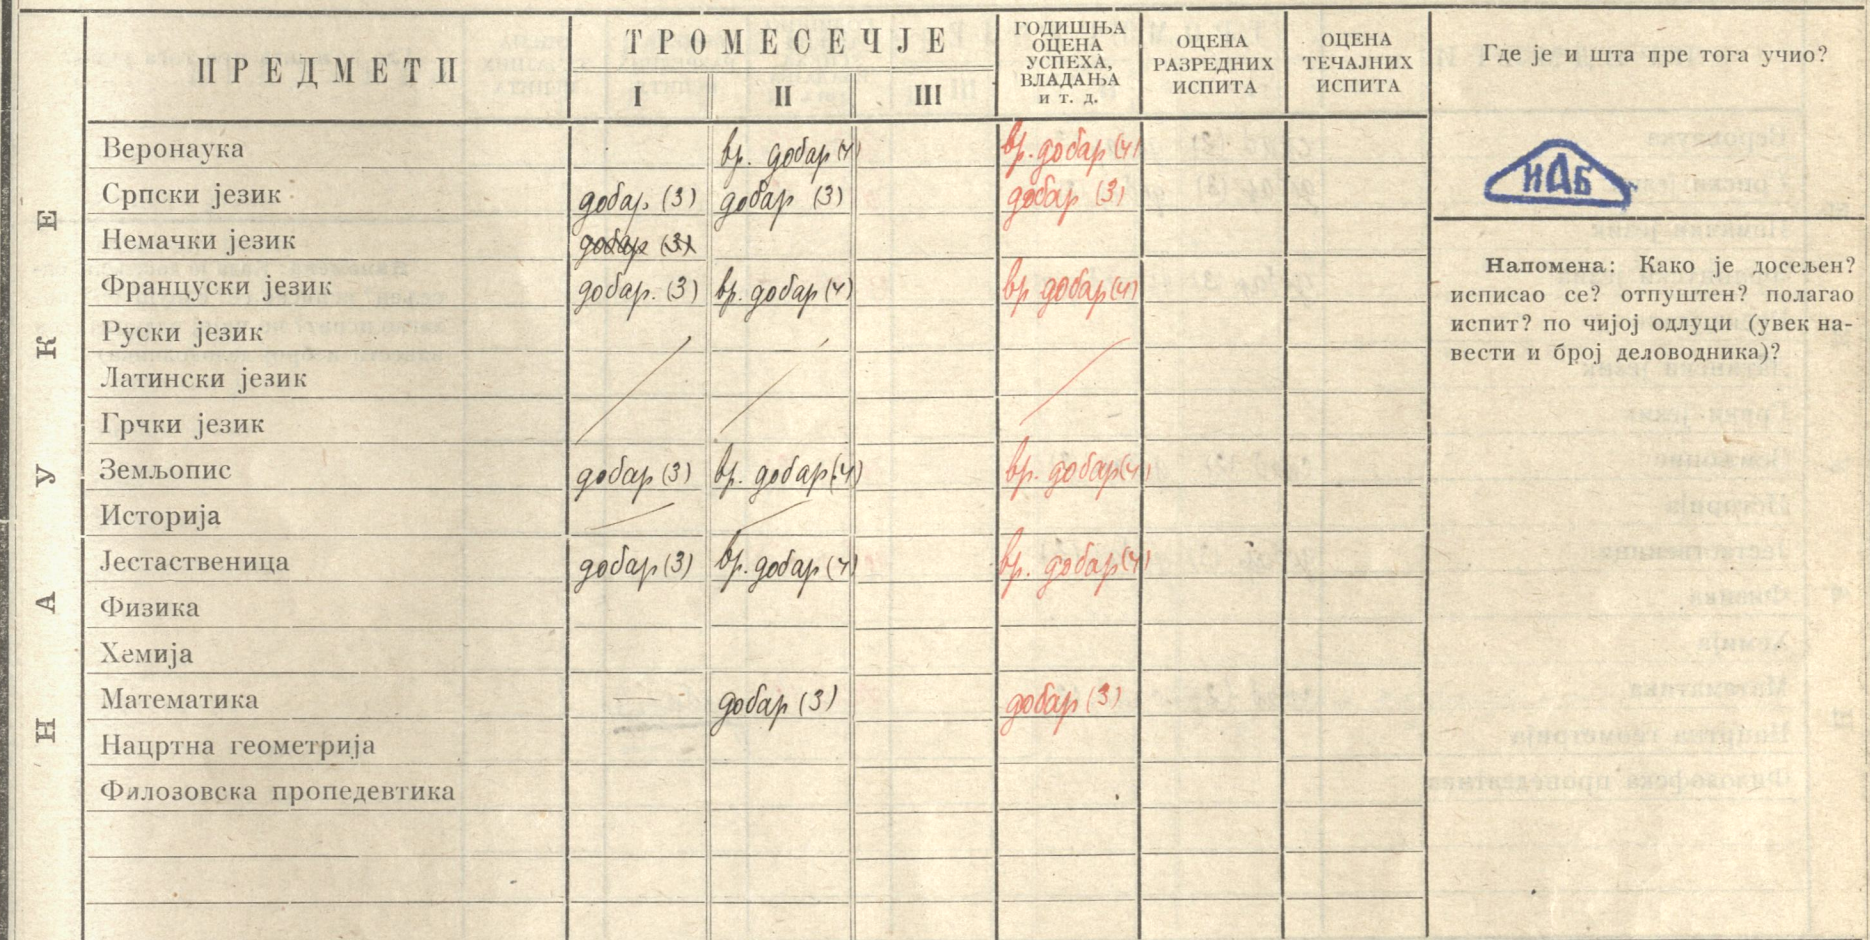 ПРЕДМЕТИ
ТРОМЕСЕЧЈЕ
I II III
ГОДИШЊА
ОЦЕНА
УСПЕХА,
ВЛАДАЊА
и т. д.
ОЦЕНА
РАЗРЕДНИХ
ИСПИТА
ОЦЕНА
ТЕЧАЈНИХ
ИСПИТА
Где је и шта пре тога учио?
НАУКЕ
Веронаука вр. добар (4) вр. добар (4)
Српски језик добар (3) добар (3) добар (3)
Немачки језик добар (3)
Француски језик добар. (3) вр. добар (4) вр добар (4)
Руски језик
Латински језик
Грчки језик
Земљопис добар (3) вр. добар (4) вр. добар (4)
Историја
Јестаственица добар (3) вр. добар (4) вр. добар (4)
Физика
Хемија
Математика добар (3) добар (3)
Нацртна геометрија
Филозовска пропедевтика
ИАБ
Напомена: Како је досељен?
исписао се? отпуштен? полагао
испит? по чијој одлуци (увек на-
вести и број деловодника)?